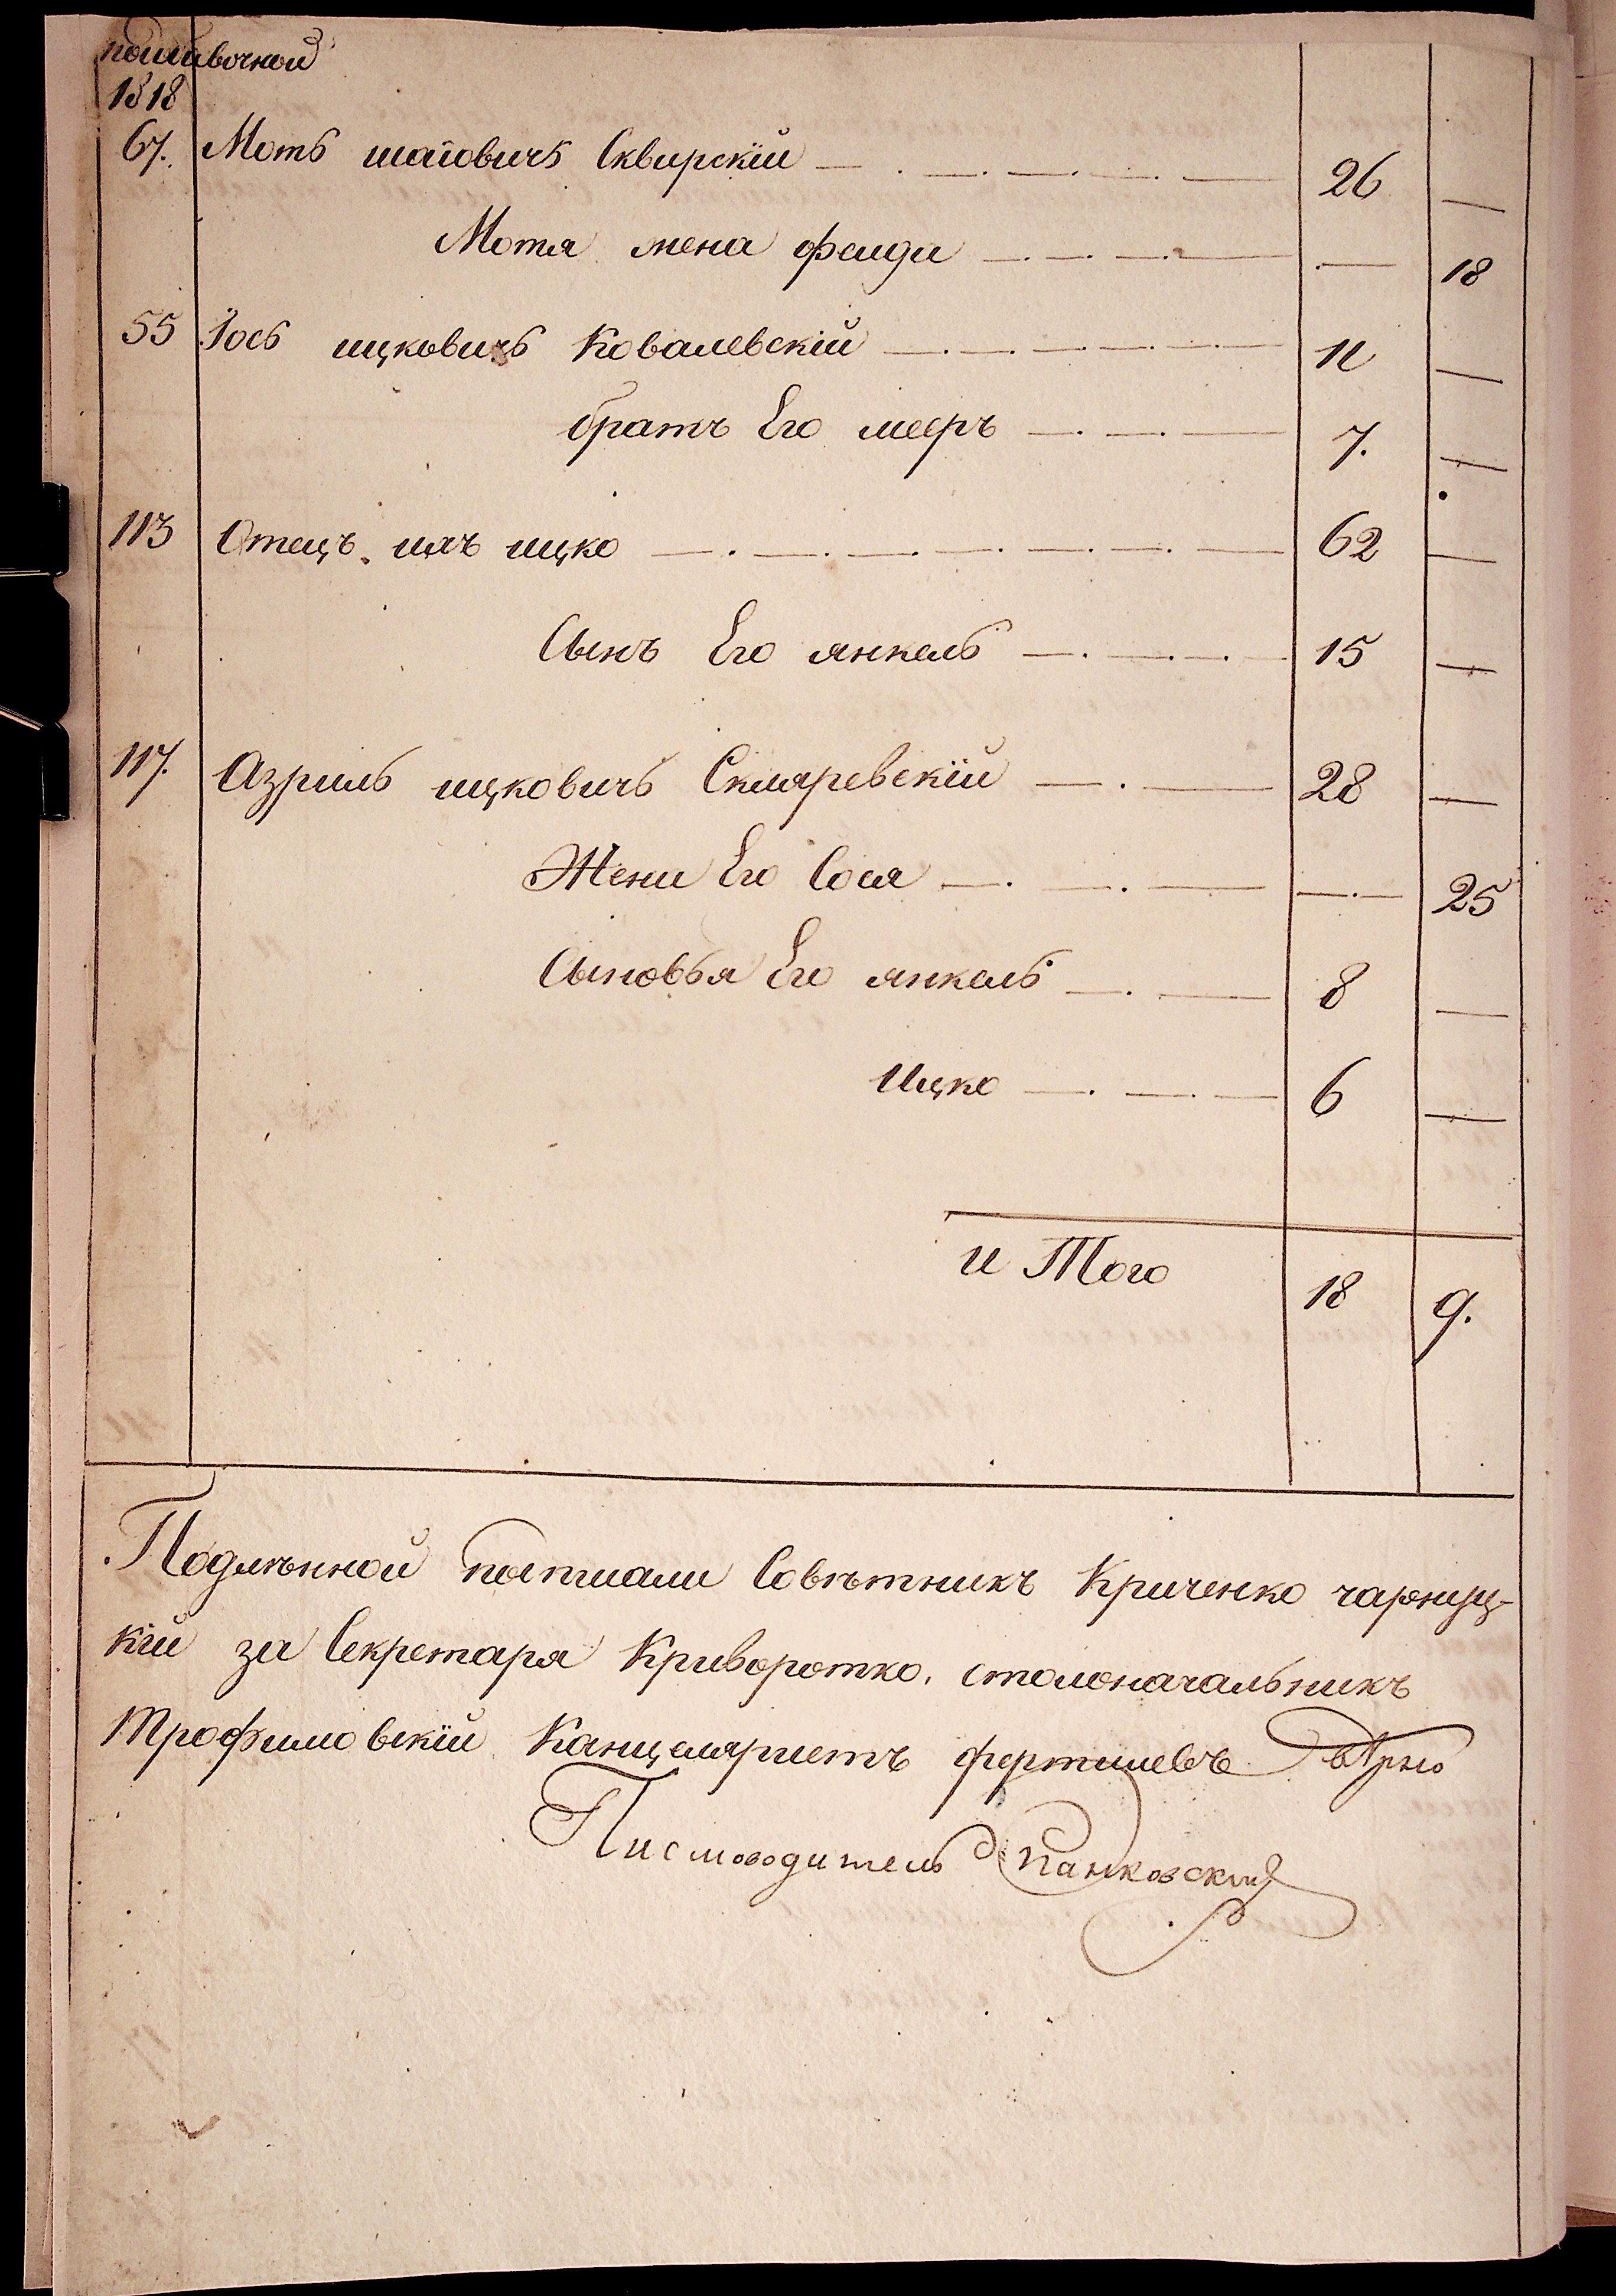 1818
67. Моть шаiовичъ Сквирскiй — . — . — . — . — 26 —
Мотя жена фейда — . — . — . — . — 18
55 Iось ицковичь Ковалевскiй — . — . — . — . — 11 —
братъ Его мееръ — . — . — 7. —
113 Отецъ ихъ ицко — . — . — . — . — . — . — 62 —
Сынъ Его янкель — . — . — . — 15 —
117. Азриль ицковичь Скляревскiй — . — 28 —
Жена Его Сося — . — . — — . — 25
Сыновья Его янкель — . — 8 —
Ицко — . — . — 6 —
и Того 18 9.
Подлѣнной подписали Совѣтникъ Криченко чарнуц-
кiй за Секретаря Криворотко. столоначальникъ
Трофимовскiй Канцеляристъ фертишевъ вѣрно
Писмоводитель Панковский